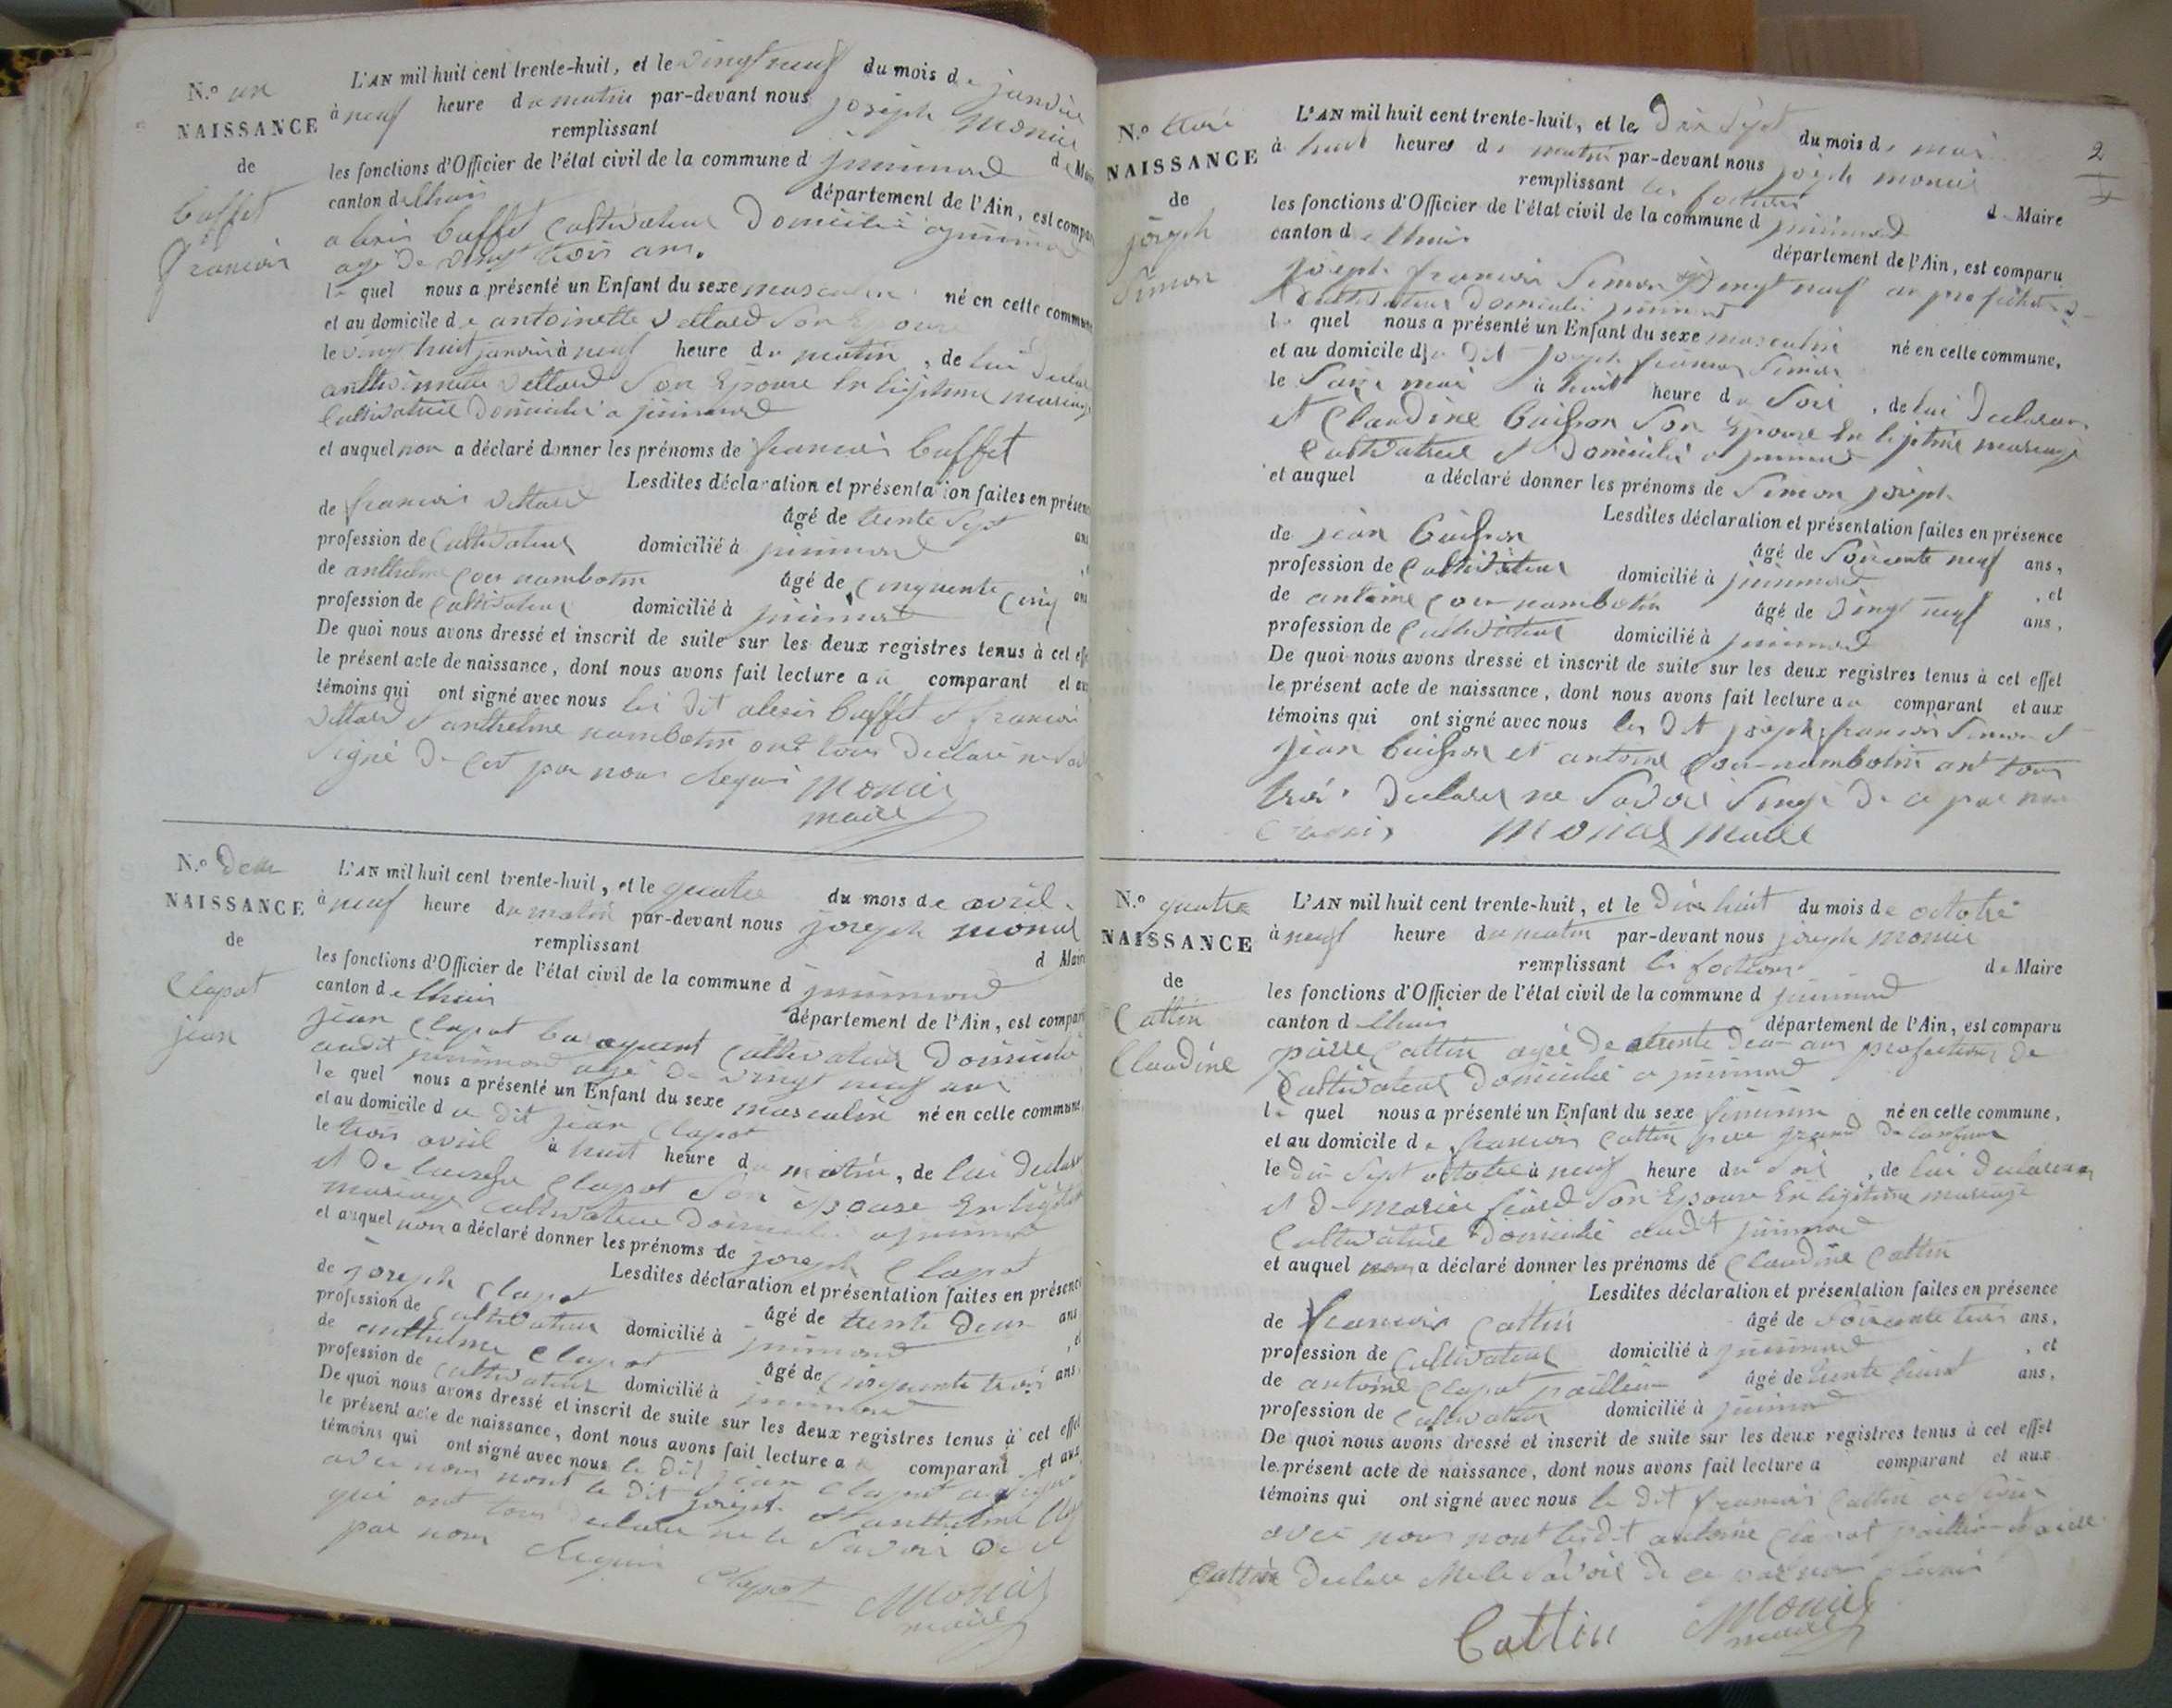 N.º un
NAISSANCE
de
buffet
francois
L'AN mil huit cent trente-huit, et le vingt neuf du mois de janvier
à neuf heure du matin par-devant nous joseph Monier
remplissant
les fonctions d'Officier de l'état civil de la commune d jnnimond d Maire
canton de lhuis département de l'Ain, est compar
alexis buffet Cultivateur Domicilié a jnnimond
agé de vingt trois ans.
le quel nous a présenté un Enfant du sexe masculin né en cette commune
et au domicile de antoinette vettard son Epouse
le vingt huit janvier à neuf heure du matin, de lui Declar
anthoinnette vettard Son Epouse Enligitime mariage
Cultivatrice Domicilié a jnnimond
et auquel non a déclaré donner les prénoms de francois buffet
Lesdites déclaration et présentation faites en présence
de francois vettard âgé de trente Sept ans
profession de Cultivateur domicilié à jnnimond
de anthelme Coer nambotin âgé de Cinquente Cinq ans
profession de Cultivateur domicilié à jnnimond
De quoi nous avons dressé et inscrit de suite sur les deux registres tenus à cet effe
le présent acte de naissance, dont nous avons fait lecture a u comparant et aux
témoins qui ont signé avec nous les Dit alexis buffet et francois
vettard et anthelme nambotin ont tous Declaré ne Sav
Signé De Cet par nous Requis Monier
maire
N.º Deux
NAISSANCE
de
Clapot
jean
L'AN mil huit cent trente-huit, et le quatre du mois de avril
à neuf heure du matin par-devant nous joseph monier
remplissant d Maire
les fonctions d'Officier de l'état civil de la commune d jnnimond
canton de lhuis département de l'Ain, est compar
jean Clapot Cultivateur Domicilié
audit jnnimond agé de vingt neuf ans
le quel nous a présenté un Enfant du sexe masculin né en cette commune,
et au domicile du dit jean Clapot
le trois avril à huit heure du matin, de lui Declar
et De Clapot Son épouse En legiti
mariage Cultivatrice Domicilié a jnnimond
et auquel non a déclaré donner les prénoms de joseph Clapot
Lesdites déclaration et présentation faites en présence
de joseph Clapot âgé de trente Deux ans
profession de Cultivateur domicilié à jnnimond , et
de anthelme Clapot âgé de Cinquente trois ans,
profession de Cultivateur domicilié à jnnimond
De quoi nous avons dressé et inscrit de suite sur les deux registres tenus à cet effet
le présent acte de naissance, dont nous avons fait lecture a u comparant et aux
témoins qui ont signé avec nous le Dit jean Clapot a signé
avec nous nont le dit joseph et anthelme Cla
qui ont tous Declarer ne le Savoir De ce
par nous Requis Clapot Monier
maire
2
N.º trois
NAISSANCE
de
joseph
Simon
L'AN mil huit cent trente-huit, et le Dix Sept du mois de mai
à huit heures du matin par-devant nous joseph monier
remplissant les foctions
les fonctions d'Officier de l'état civil de la commune d jnnimond de Maire
canton de lhuis département de l'Ain, est comparu
joseph francois Simon agé vingt neuf an profession d
Cultivateur Domicilié jnnimond
le quel nous a présenté un Enfant du sexe masculin né en cette commune,
et au domicile du dit joseph francois Simon
le Seize mai à huit heure du Soir, de lui Declaran
et Claudine buisson Son Epouse En ligitime mariage
Cultivatrice et Domicilié a jnnimond
et auquel a déclaré donner les prénoms de Simon joseph
Lesdites déclaration et présentation faites en présence
de jean buisson âgé de Soixente neuf ans,
profession de Cultivateur domicilié à jnnimond , et
de antoine Coer nambotin âgé de vingt neuf ans,
profession de Cultivateur domicilié à jnnimond
De quoi nous avons dressé et inscrit de suite sur les deux registres tenus à cet effet
le présent acte de naissance, dont nous avons fait lecture a u comparant et aux
témoins qui ont signé avec nous les Dit joseph francois Simon et
jean buisson et antoine Coer-nambotin ont tous
trois Declarer ne Savoir Singé De ce par nous
Requis Monier Maire
N.º quatre
NAISSANCE
de
Cattin
Claudine
L'AN mil huit cent trente-huit, et le Dix huit du mois de octobre
à neuf heure du matin par-devant nous joseph monier
remplissant les foctions de Maire
les fonctions d'Officier de l'état civil de la commune d jnnimond
canton d lhuis département de l'Ain, est comparu
pierre Cattin agée De trente Deux ans profections de
Cultivateur Domicilié a jnnimond
le quel nous a présenté un Enfant du sexe feminin né en cette commune,
et au domicile de francois Cattin pere grand De lenfant
le dix Sept octobre à neuf heure du Soir, de lui Declaran
et De marie Son Epouse En legitime mariage
Cultivatrice Domicilié audit jnnimond
et auquel nous a déclaré donner les prénoms de Claudine Cattin
Lesdites déclaration et présentation faites en présence
de francois Cattin âgé de Soixente trois ans,
profession de Cultivateur domicilié à jnnimond , et
de antoine Clapot paillein âgé de trente huit ans,
profession de Cultivateur domicilié à jnnimond
De quoi nous avons dressé et inscrit de suite sur les deux registres tenus à cet effet
le présent acte de naissance, dont nous avons fait lecture a comparant et aux
témoins qui ont signé avec nous le Dit francois Cattin a Siné
avec nous nont ledit antoine Clapot paillein et pierre
Cattin Declare Ne le Savoir De ce par nous Requis
Cattin Monier
maire